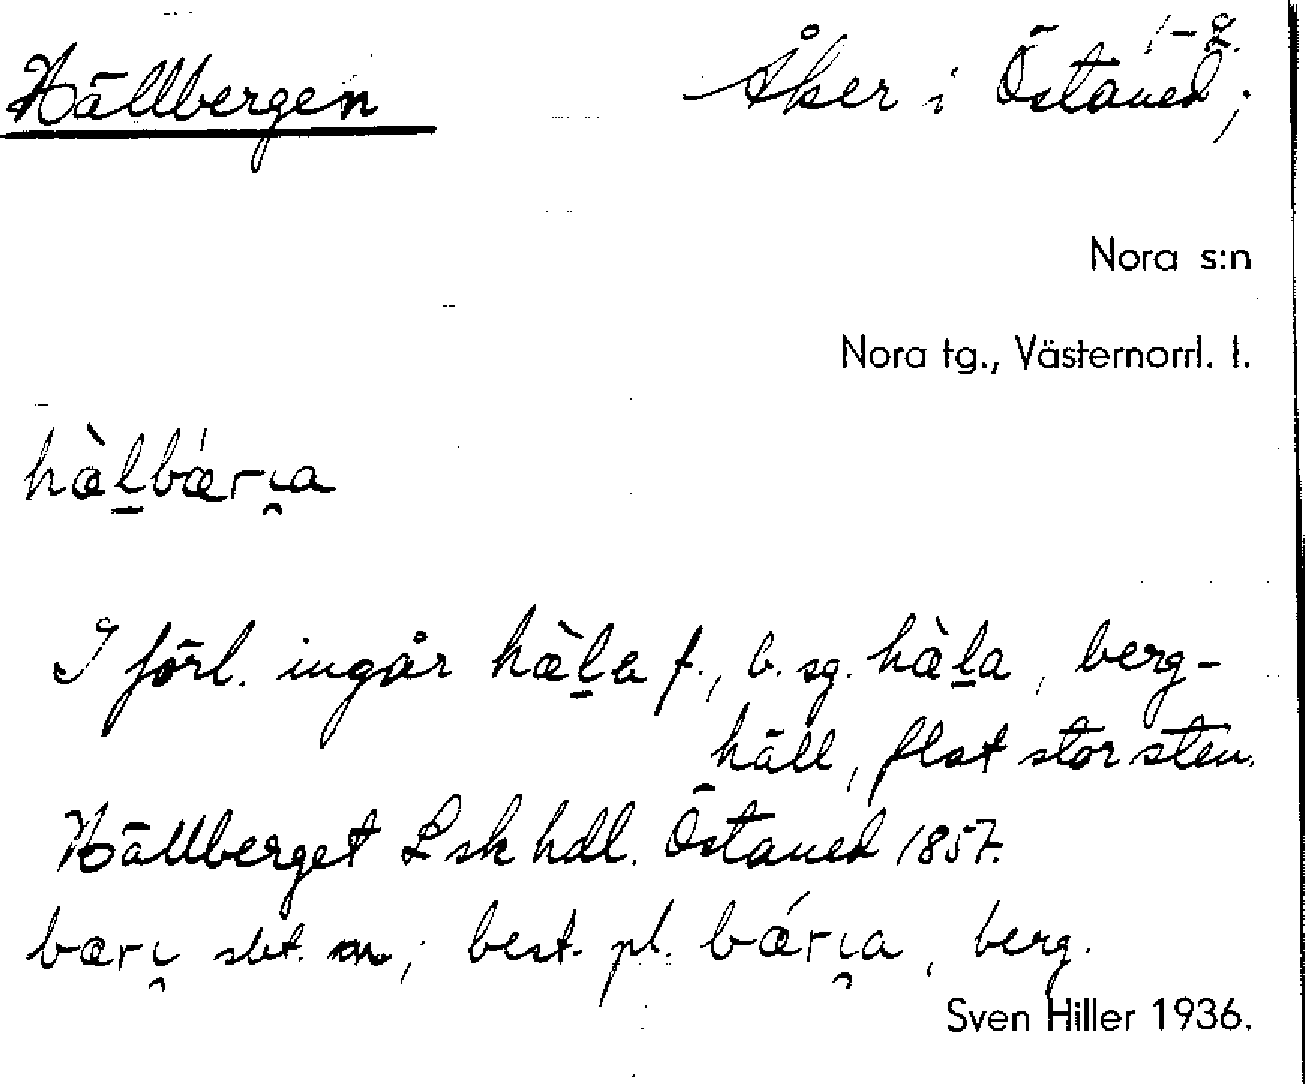 Hällbergen
Åker i Östaned;
1-2.
Nora s:n
Nora tg., Västernorrl. l.
hæ̀l̠bǽrı̯a
I förl. ingår hæ̀l̠a f., b. sg. hæ̀l̠a, berg-
häll, flat stor sten.
Hällberget Lsk hdl. Östaned 1857.
bærı̯ sbt. m; best. pl. bǽrı̯a, berg.
Sven Hiller 1936.